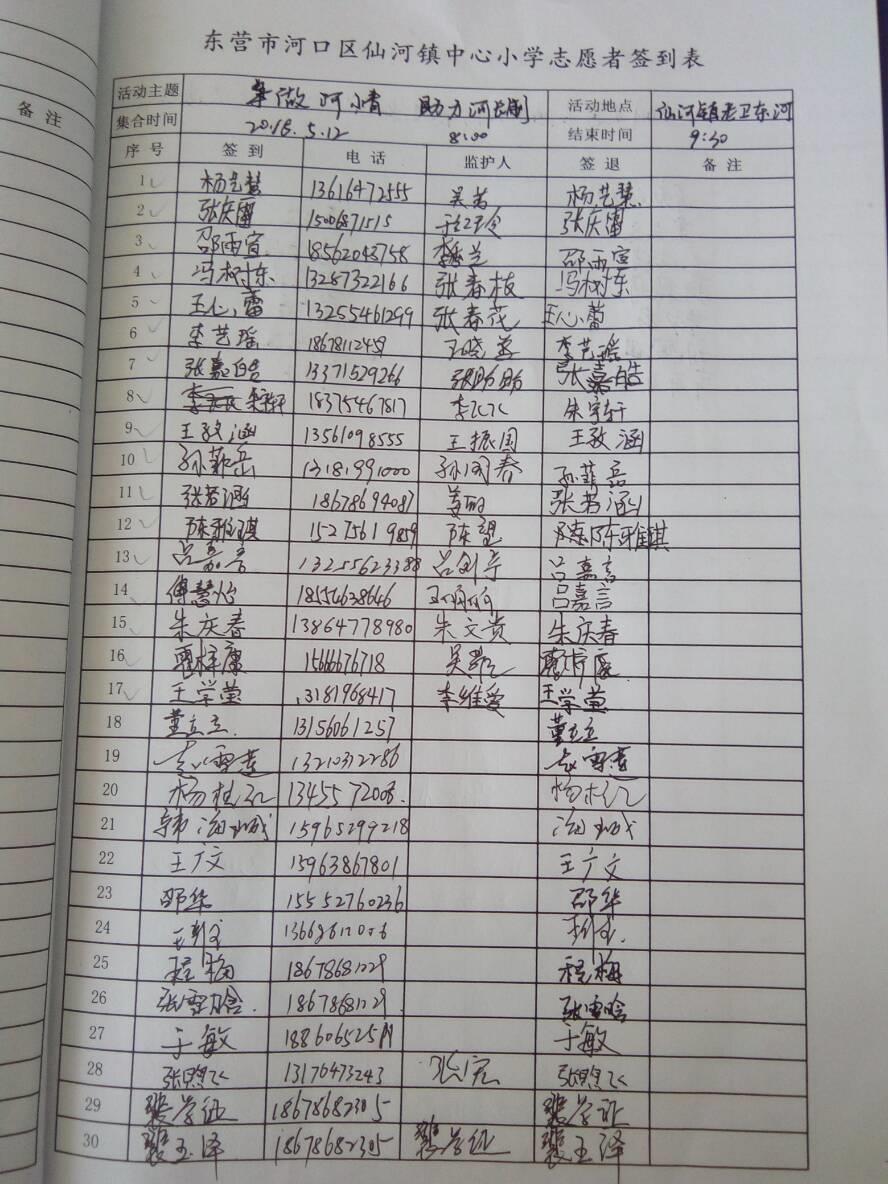 备 注
东营市河口区仙河镇中心小学志愿者签到表
活动主题 争做河小青 助力河长制 活动地点 仙河镇老卫东河
集合时间 2018.5.12 8:00 结束时间 9:30
序号 签到 电话 监护人 签退 备注
1 杨艺慧 13616472555 吴芳 杨艺慧
2 张庆雷 15006871515 张庆雷
3 邵雨宣 18562043758 邵雨宣
4 冯树东 13287322166 张春枝 冯树东
5 王心蕾 13255461299 张春花 王心蕾
6 李艺瑶 李艺瑶
7 张嘉皓 13371529266 张助助 张嘉皓
8 朱宇轩 18375467817 李飞飞 朱宇轩
9 王敬涵 13561098555 王振国 王敬涵
10 孙菲岳 13181991000 孙闵春 孙菲岳
11 张若涵 18678694087 姜丽 张若涵
12 陈雅琪 15275619859 陈望 陈雅琪
13 吕嘉言 13255623388 吕剑亭 吕嘉言
14 傅慧怡 18554638646 吕嘉言
15 朱庆春 13864778980 朱文贵 朱庆春
16 15666676718
17 王学萤 13181968417 李维爱 王学萤
18 董立立 13156061257 董立立
19 13210312286
20 杨桂红 1345572008 杨桂红
21 韩海城 15965299218 海城
22 王广文 15963867801 王广文
23 邵华 15552760236 邵华
24
25 程梅 18678681229 程梅
26 张雪晗 18678681229 张雪晗
27 于敏 于敏
28 张煦飞 13176473243 张宏 张煦飞
29 裴学证 18678682305 裴学证
30 裴玉泽 18678682305 裴学证 裴玉泽